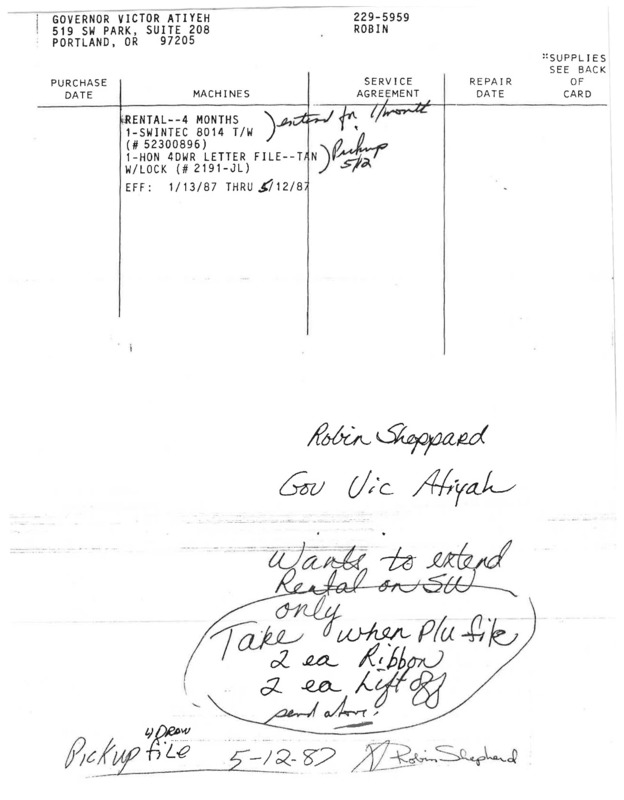 GOVERNOR VICTOR ATIYEH 229-5959
519 SW PARK, SUITE 208 ROBIN
PORTLAND, OR 97205
**SUPPLIES
SEE BACK
OF
CARD
PURCHASE
DATE
MACHINES
SERVICE
AGREEMENT
REPAIR
DATE
RENTAL--4 MONTHS
1-SWINTEC 8014 T/W
(# 52300896)
extend for 1/month
1-HON 4DWR LETTER FILE--TAN
W/LOCK (# 2191-JL)
Pickup
5/12
EFF: 1/13/87 THRU 5/12/87
Robin Sheppard
Gov Vic Atiyah
Wants to extend
Rental on SW
only
Take when P/u file
2 ea Ribbon
2 ea Lift Off
send above.
4 Draw
Pickup file 5-12-87 X Robin Shepherd